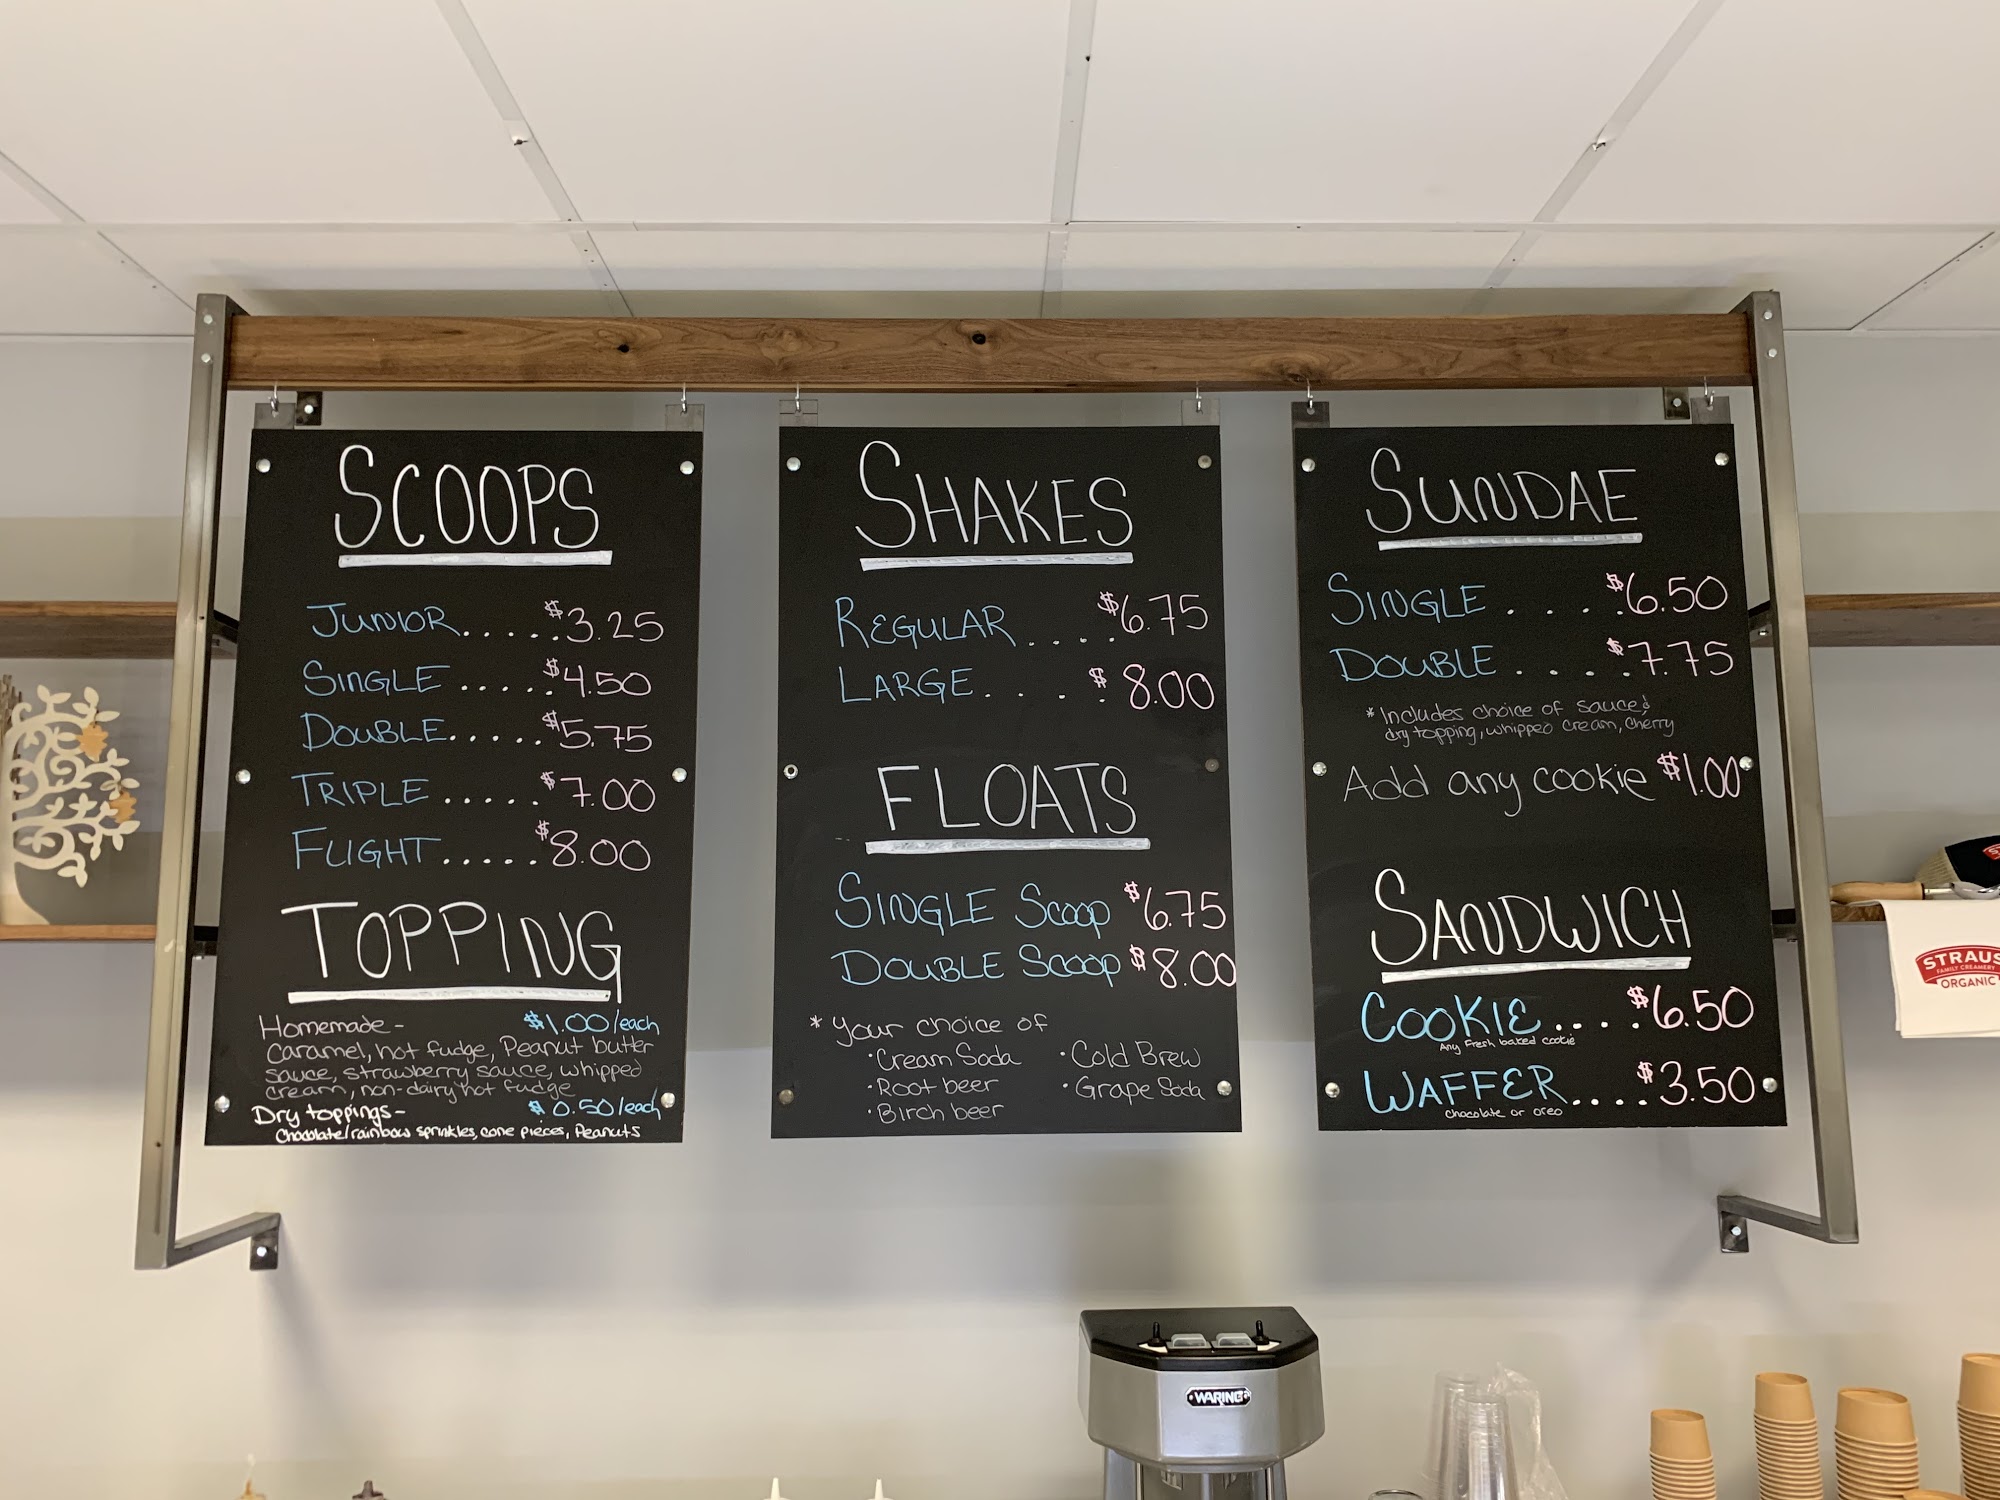 SCOOPS
JUNIOR.....$3.25
SINGLE.....$4.50
DOUBLE.....$5.75
TRIPLE.....$7.00
FLIGHT.....$8.00
TOPPING
Homemade- $1.00/each
Caramel, hot fudge, Peanut butter
sauce, strawberry sauce, whipped
cream, non-dairy hot fudge
Dry toppings- $0.50/each
Chocolate/rainbow sprinkles, cone pieces, Peanuts
SHAKES
REGULAR....$6.75
LARGE....$8.00
FLOATS
SINGLE Scoop $6.75
DOUBLE Scoop $8.00
* Your choice of
• Cream Soda • Cold Brew
• Root beer • Grape Soda
• Birch beer
SUNDAE
SINGLE....$6.50
DOUBLE....$7.75
* Includes choice of sauce &
dry topping, whipped cream, cherry
Add any cookie $1.00
SANDWICH
COOKIE....$6.50
Any Fresh baked cookie
WAFFER....$3.50
Chocolate or oreo
STRAUS
FAMILY CREAMERY
ORGANIC
WARING